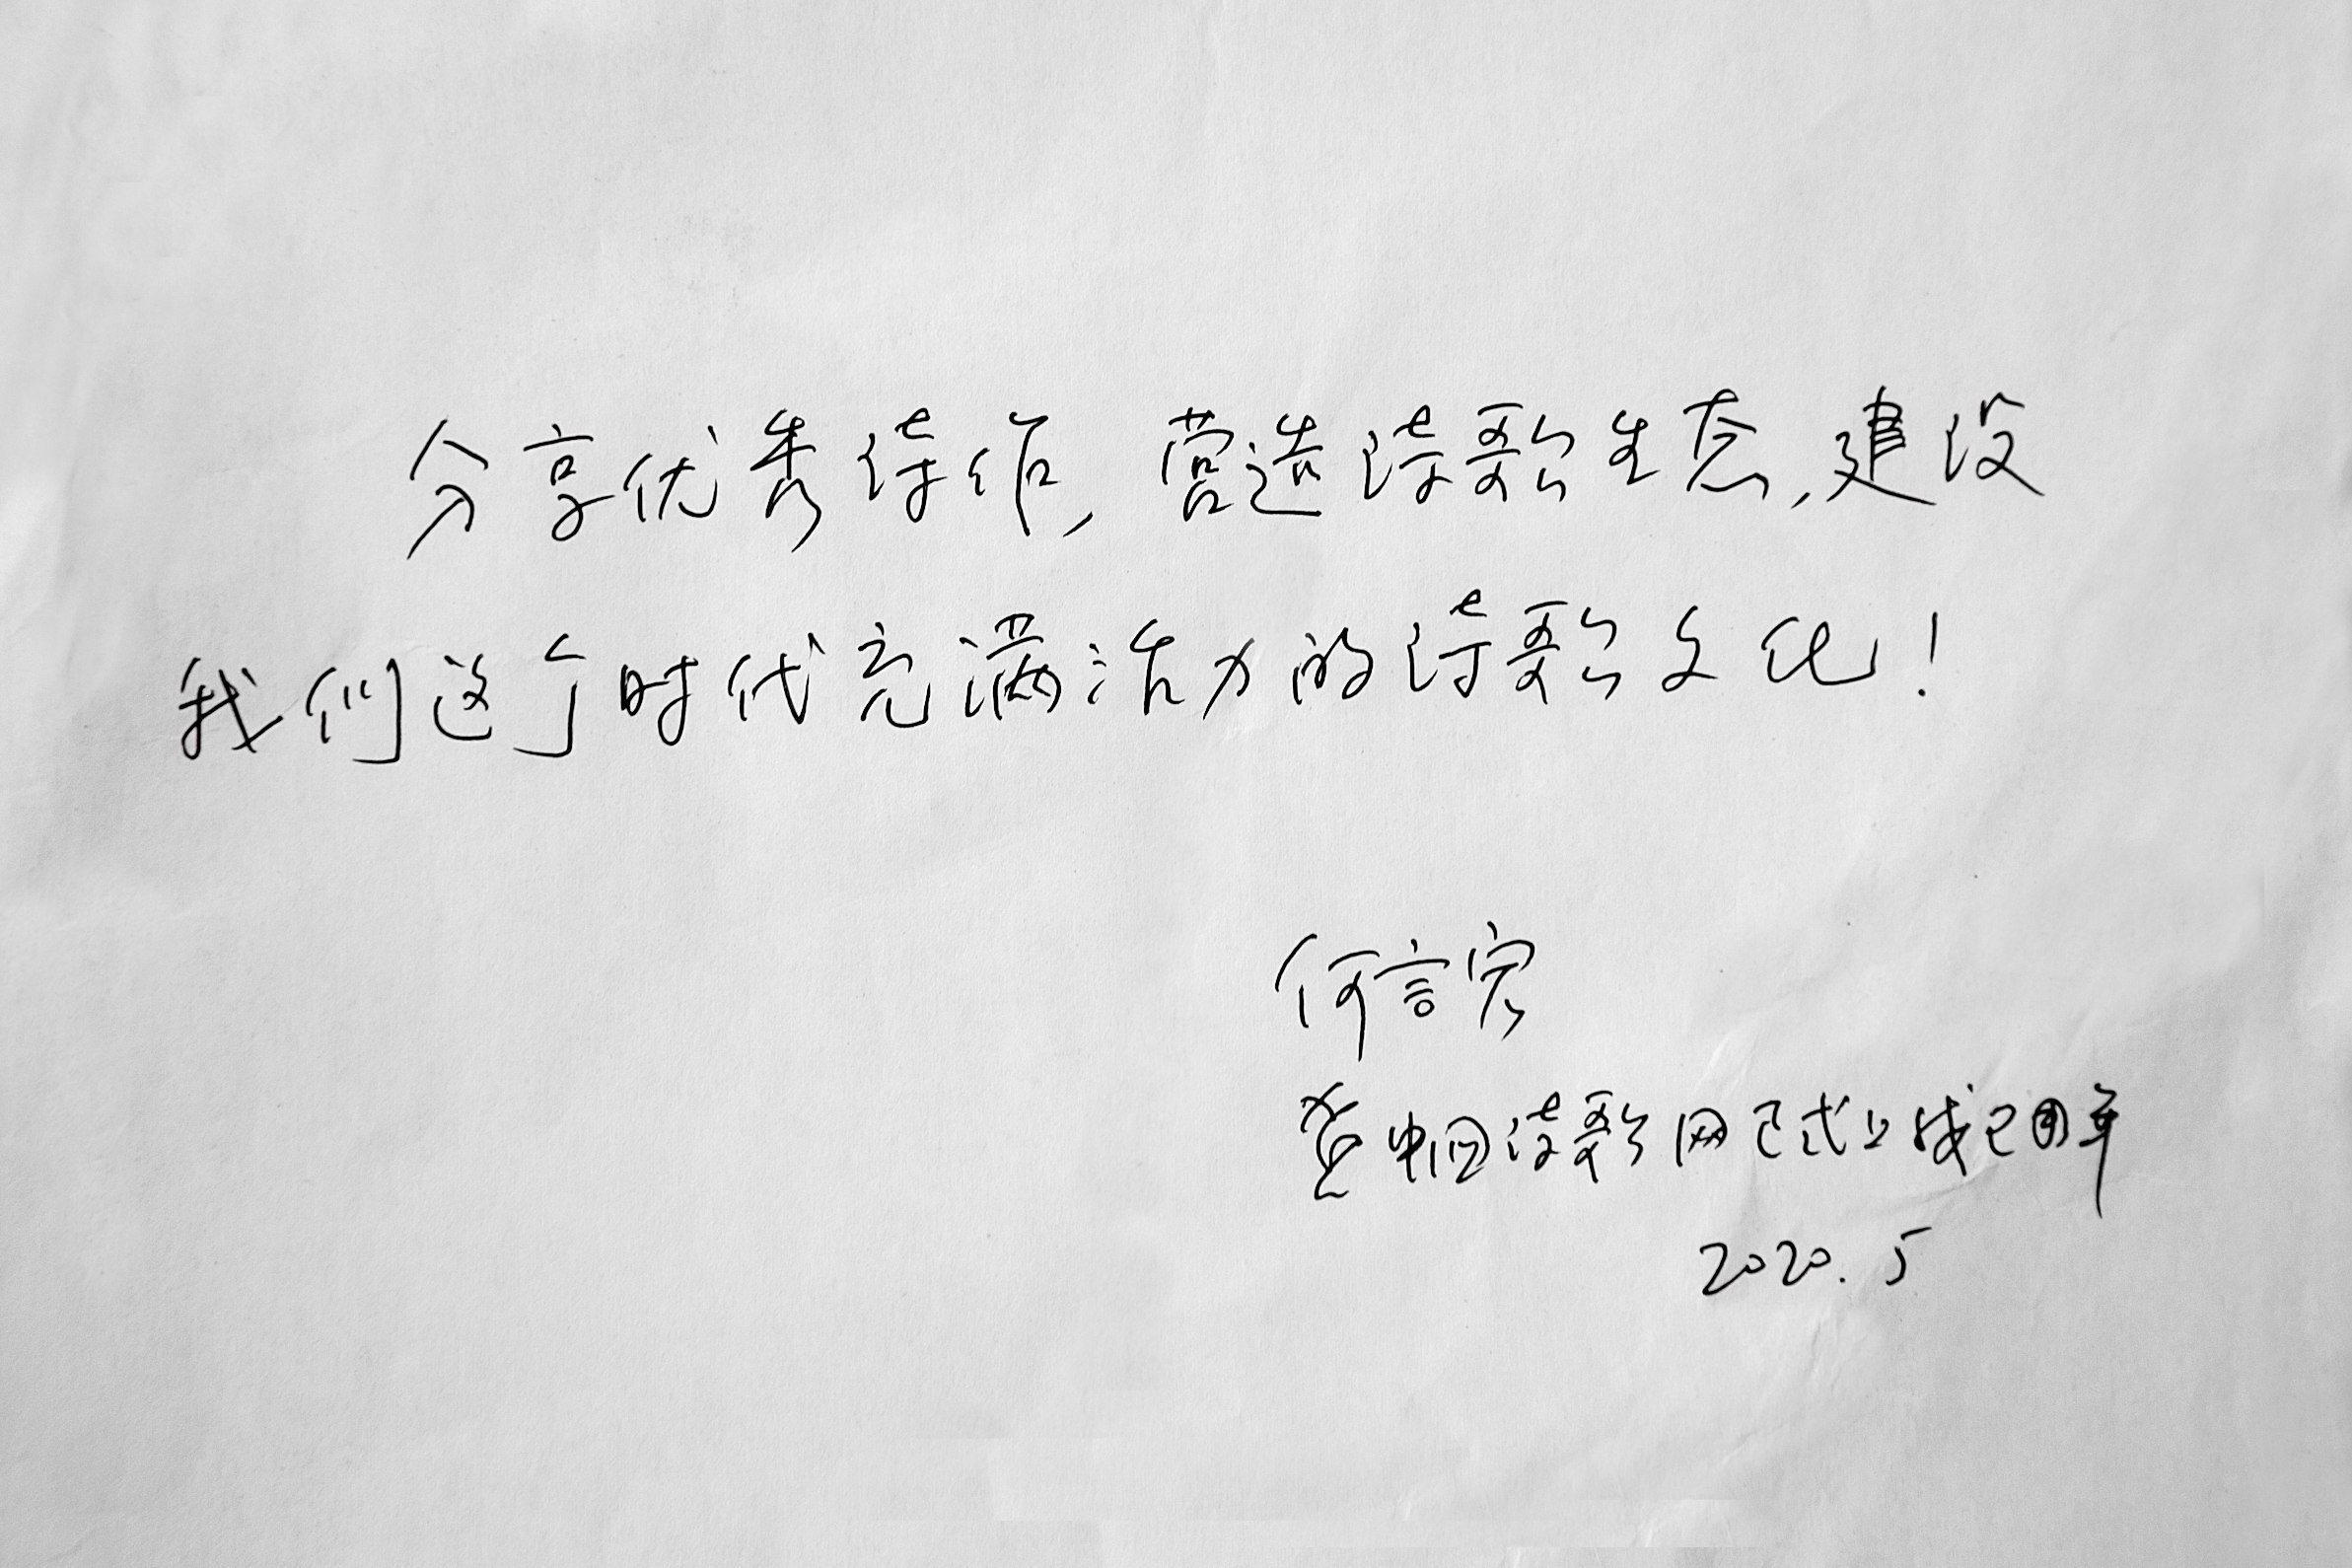 分享优秀诗作,营造诗歌生态,建设
我们这个时代充满活力的诗歌文化!
何言宏
贺中国诗歌网正式上线五周年
2020.5